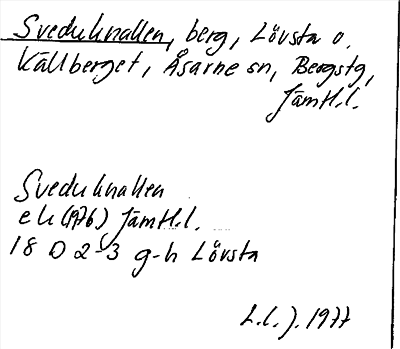 Sveduknallen, berg, Lövsta o.
Källberget, Åsarne sn, Bergstg,
Jämtl.l.
Sveduknallen
ek (1976) Jämtl.l.
18 D 2-3 g-h Lövsta
L.l.J. 1977